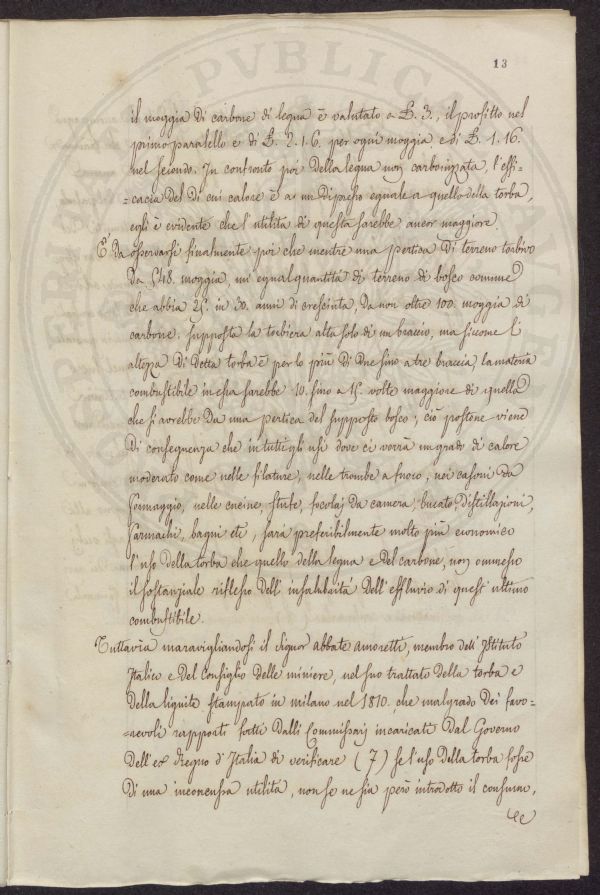 13
il moggia di carbone di legna è valutato a L. 3., il profitto nel
primo paralello è di L. 2.1.6. per ogni moggia e di L. 1.16.
nel secondo. In confronto poi della legna non carbonizzata, l'effi-
=cacia del di cui calore è a un dipresso eguale a quello della torba,
egli è evidente che l'utilità di questa sarebbe ancor maggiore.
È da osservarsi finalmente poi che mentre una pertica di terreno torbivo
da 548. moggia, un'egual quantità di terreno di bosco comune
che abbia 25. in 30. anni di cresciuta, da non oltre 100. moggia di
carbone, supposta la torbiera alta solo di un braccio, ma siccome l'
altezza di detta torba è per lo più di due sino a tre braccia, la materia
combustibile in essa sarebbe 10. sino a 15. volte maggiore di quella
che si avrebbe da una pertica del supposto bosco; ciò postone viene
di conseguenza che in tutti gli usi dove ci vorrà un grado di calore
moderato come nelle filature, nelle trombe a fuoco, nei casoni da
formaggio, nelle cucine, stufe, focolaj da camera, bucato, distillazioni,
farmachi, bagni etc, sarà preferibilmente molto più economico
l'uso della torba che quello della legna e del carbone, non ommesso
il sostanziale riflesso dell'insalubrità dell'effluvio di quest'ultimo
combustibile.
Tuttavia maravigliandosi il Signor abbate amoretti, membro dell'Istituto
Italico e del Consiglio delle miniere, nel suo trattato della torba e
della lignite stampato in milano nel 1810, che malgrado dei favo-
=revoli rapporti fatti dalli Commissarj incaricati dal Governo
dell'ex Regno d'Italia di verificare (7) se l'uso della torba fosse
di una inconcussa utilità, non se ne sia però introdotto il consumo,